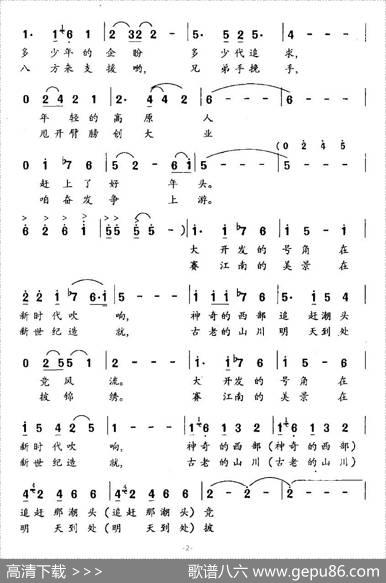 1· 1 6 1 | 2 3 2 2 - | 5· 5 2 5· | 4 - - - |
多 少年的 企 盼 多 少代 追 求,
八 方来支 援 哟, 兄 弟手 挽 手,
0 2 4 2 1 | 2· 4 4 2 | 6 - - - | 6 - - - |
年 轻 的 高 原 人
甩 开 臂 膀 创 大 业
(0 2 4 5
0 1 ♭7 6 | 5 - - 6 1 | 5 - - - | 5 - - - |
赶 上 了 好 年 头。
咱 奋 发 争 上 游。
6 2 6 1 | 5 5 5 5 | 5 - - -) | 1· 1 ♭7 6 | 1 1 1 4 |
大 开 发 的 号 角 在
赛 江 南 的 美 景 在
2 2 1 ♭7 6·1 | 5 - - - | 1 1 1 6 5 | 5· 1 5 4 |
新时代吹 响, 神奇的西部 追 赶潮头
新世纪造 就, 古老的山川 明 天到处
0 2 5 5 1 | 2 - - - | 1· 1 ♭7 6 | 1 1 1 4 |
竞风 流。 大 开 发 的 号 角 在
披锦 绣。 赛 江 南 的 美 景 在
1 5 4 2 1 | 5 - - - | 1 6 1 3 2 | 1 6 1 6 5 |
新时代吹 响, 神奇的西部 (神奇的西部)
新世纪造 就, 古老的山川 (古老的山川)
4 2 4 6 6 | 4 2 4 6 6 | 2 - - - | 2 - - 0 |
追赶 那潮头 (追赶 那潮头) 竞
明 天到处 (明 天到处) 披
- 2 -
高清下载 >>>
歌谱八六 www.gepu86.com